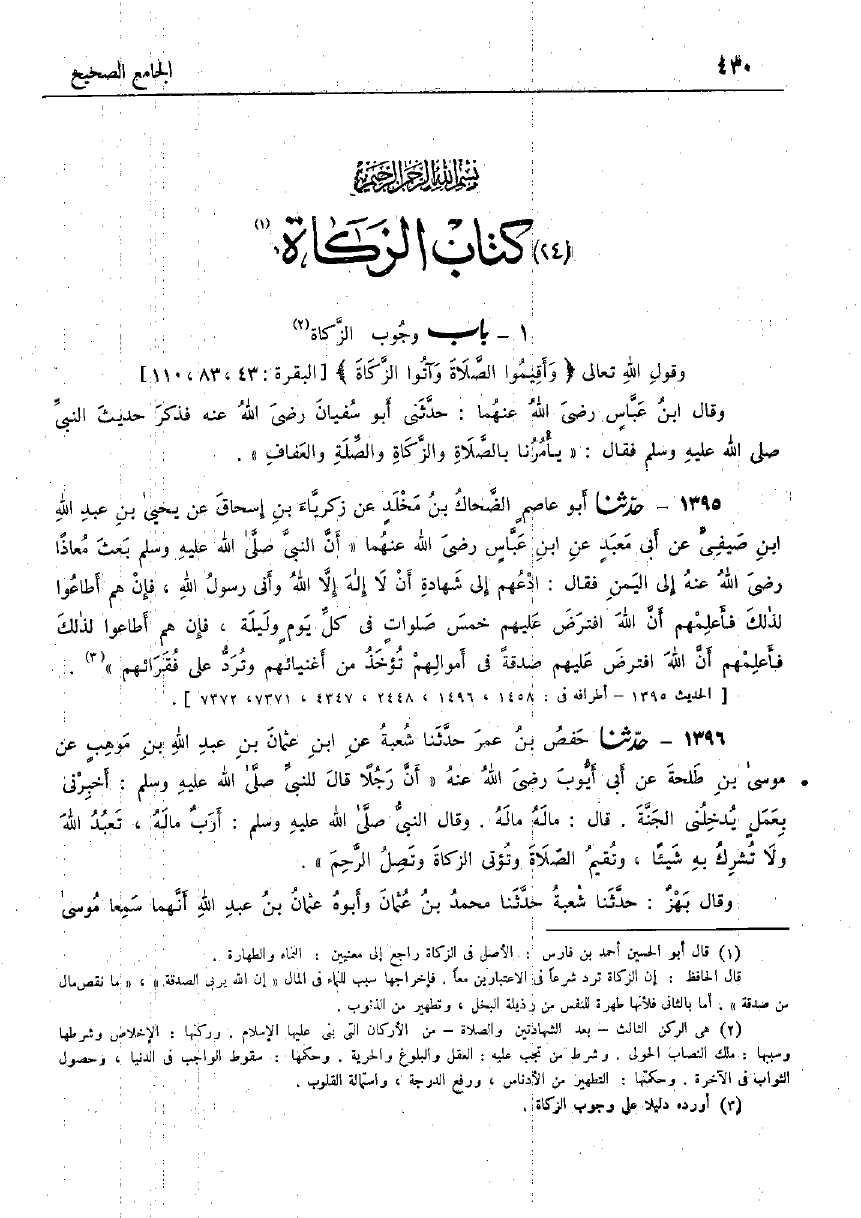 ٤٣٠
الجامع الصحيح
بسم الله الرحمن الرحيم
(٢٤) كتاب الزكاة (١)
١ - باب وجُوب الزَّكاة(٢)
وقولِ اللهِ تعالى ﴿ وَأَقِيمُوا الصَّلَاةَ وَآتُوا الزَّكَاةَ ﴾ [ البقرة : ٤٣ ، ٨٣ ، ١١٠ ]
وقال ابنُ عَبَّاسٍ رضىَ اللهُ عنهُما : حدَّثَنى أبو سُفيانَ رضىَ اللهُ عنه فذكرَ حديثَ النبيِّ
صلى الله عليهِ وسلم فقال : « يأمُرُنا بالصَّلاةِ والزَّكاةِ والصِّلَةِ والعَفافِ » .
١٣٩٥ - حدّثنا أبو عاصمٍ الضَّحاكُ بنُ مَخْلَدٍ عن زكريَّاءَ بنِ إسحاقَ عن يحيىٰ بنِ عبدِ اللهِ
ابنِ صَيفىٍّ عن أبى مَعبَدٍ عنِ ابنِ عَبَّاسٍ رضىَ الله عنهُما « أنَّ النبيَّ صلَّى الله عليهِ وسلم بَعثَ مُعاذًا
رضىَ اللهُ عنهُ إلى اليَمنِ فقال : ادْعُهم إلى شَهادةِ أنْ لَا إلٰهَ إلَّا اللهُ وأنى رسولُ اللهِ ، فإنْ هم أطاعُوا
لذٰلكَ فأعلِمْهم أنَّ اللهَ افترَضَ عَليهم خمسَ صَلواتٍ فى كلِّ يَومٍ ولَيلَة ، فإن هم أطاعوا لذٰلكَ
فأعلِمْهم أنَّ اللهَ افترضَ عَليهم صدقةً فى أموالِهمْ تُؤخَذُ من أغنيائهم وتُرَدُّ على فُقَرَائهم »(٣) .
[ الحديث ١٣٩٥ - أطرافه فى : ١٤٥٨ ، ١٤٩٦ ، ٢٤٤٨ ، ٤٣٤٧ ، ٧٣٧١ ، ٧٣٧٢ ] .
١٣٩٦ - حدّثنا حَفصُ بنُ عمرَ حدَّثَنا شُعبةُ عنِ ابنِ عثمانَ بنِ عبدِ اللهِ بنِ مَوهِبٍ عن
موسىٰ بنِ طَلحةَ عن أبى أيُّوبَ رضىَ اللهُ عنهُ « أنَّ رَجُلًا قالَ للنبيِّ صلَّى الله عليهِ وسلم : أخبِرْنى
بِعَملٍ يُدخِلُنى الجَنَّةَ . قال : مالَهُ مالَهُ . وقال النبيُّ صلَّى الله عليهِ وسلم : أرَبٌ مالَهُ ، تَعبُدُ اللهَ
ولَا تُشرِكُ بهِ شَيئًا ، وتُقيمُ الصَّلَاةَ وتُؤتى الزكاةَ وتَصِلُ الرَّحِمَ » .
وقال بَهْزٌ : حدَّثَنا شعبةُ حدَّثَنا محمدُ بنُ عُثمانَ وأبوهُ عثمانُ بنُ عبدِ اللهِ أنَّهما سَمِعا مُوسىٰ
(١) قال أبو الحسين أحمد بن فارس : الأصل فى الزكاة راجع إلى معنيين : النماء والطهارة .
قال الحافظ : إن الزكاة ترد شرعاً فى الاعتبارين معاً . فإخراجها سبب للنماء فى المال « إن الله يربى الصدقة » ، « ما نقص مال
من صدقة » . أما بالثانى فلأنها طهرة للنفس من رذيلة البخل ، وتطهير من الذنوب .
(٢) هى الركن الثالث - بعد الشهادتين والصلاة - من الأركان التى بنى عليها الإسلام . وركنها : الإخلاص وشرطها
وسببها : ملك النصاب الحولى . وشرط من تجب عليه : العقل والبلوغ والحرية . وحكمها : سقوط الواجب فى الدنيا ، وحصول
الثواب فى الآخرة . وحكمتها : التطهير من الأدناس ، ورفع الدرجة ، واستمالة القلوب .
(٣) أورده دليلا على وجوب الزكاة .